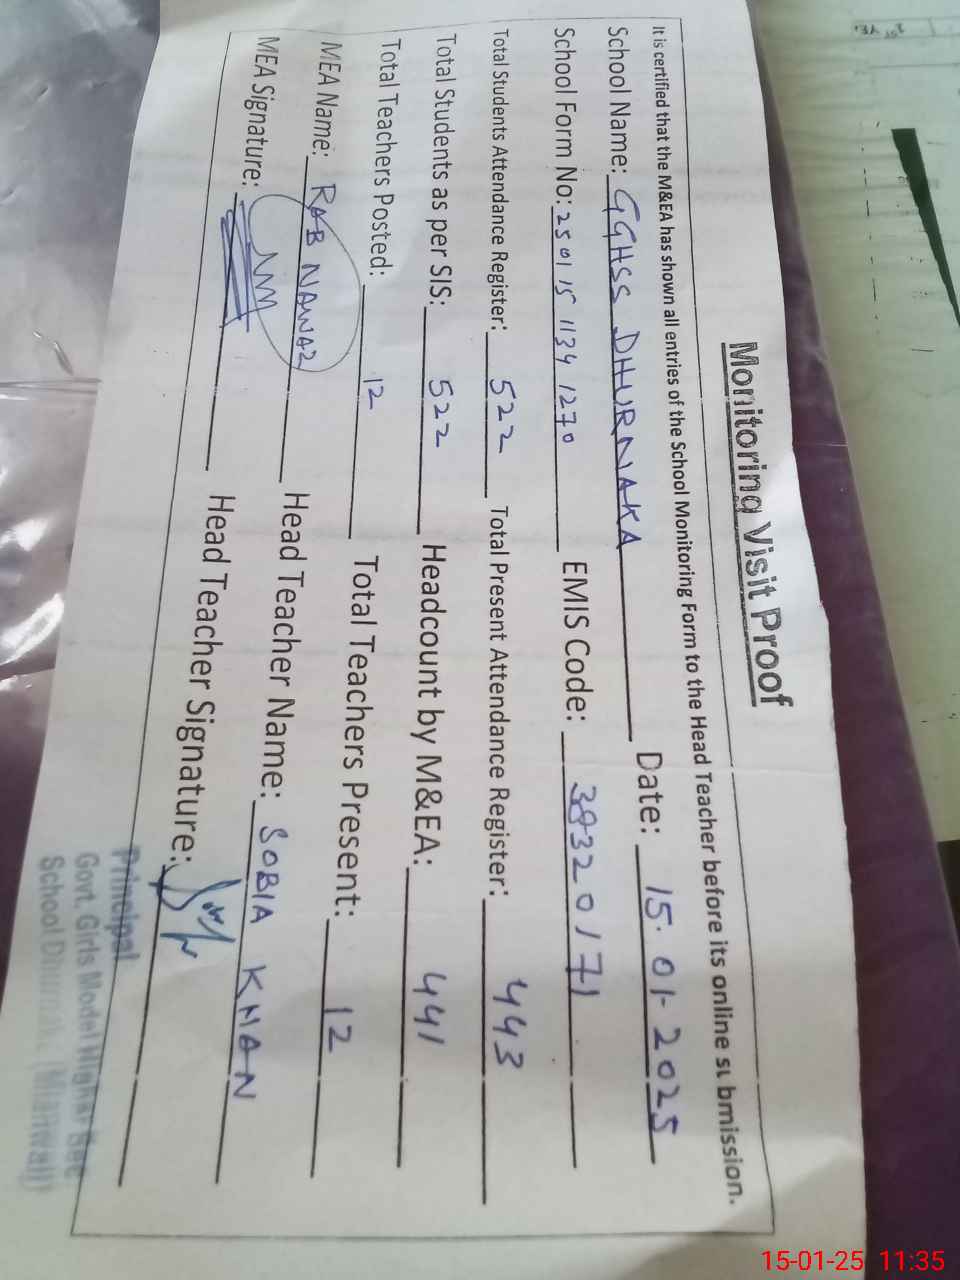 Monitoring Visit Proof
It is certified that the M&EA has shown all entries of the School Monitoring Form to the Head Teacher before its online submission.
School Name: GGHSS DHURNAKA Date: 15.01-2025
School Form No: 25011511341270 EMIS Code: 38320171
Total Students Attendance Register: 522 Total Present Attendance Register: 443
Total Students as per SIS: 522 Headcount by M&EA: 441
Total Teachers Posted: 12 Total Teachers Present: 12
MEA Name: RAB NAWAZ Head Teacher Name: SOBIA KHAN
MEA Signature: Head Teacher Signature:
Principal
Govt. Girls Model Higher Sec
School (Mianwali)
15-01-25 11:35